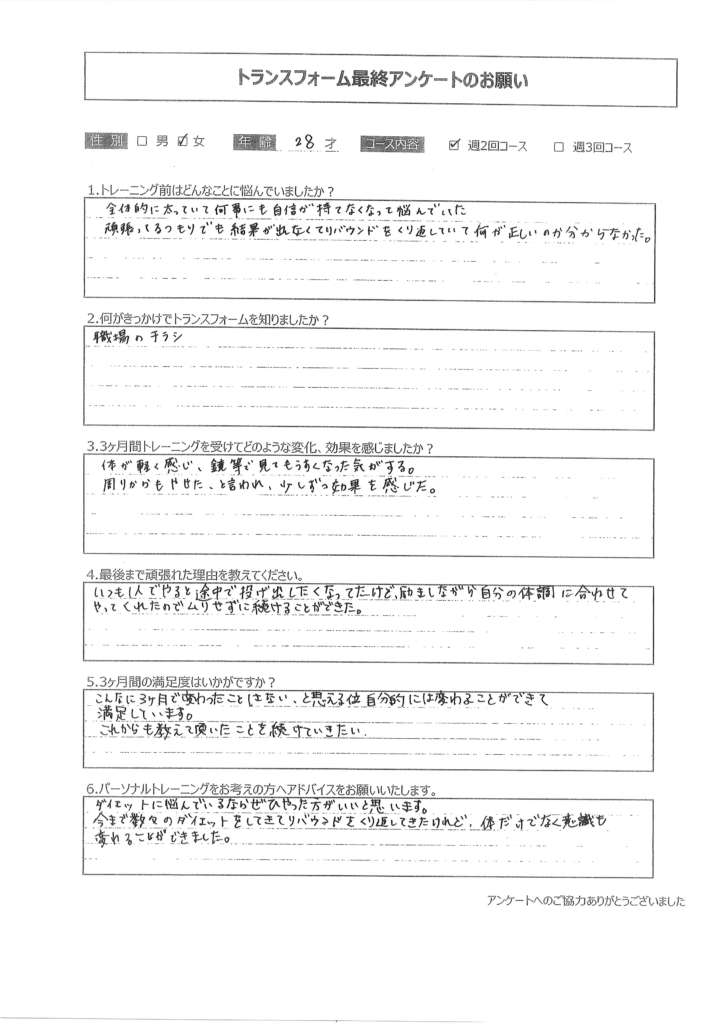 トランスフォーム最終アンケートのお願い
性別 □ 男 ☑ 女 年齢 28 才 コース内容 ☑ 週2回コース □ 週3回コース
1.トレーニング前はどんなことに悩んでいましたか？
全体的に太っていて何事にも自信が持てなくなって悩んでいた
頑張ってるつもりでも結果が出なくてリバウンドをくり返していて何が正しいのか分からなかった。
2.何がきっかけでトランスフォームを知りましたか？
職場のチラシ
3.3ヶ月間トレーニングを受けてどのような変化、効果を感じましたか？
体が軽く感じ、鏡等で見てもうすくなった気がする。
周りからもやせた、と言われ、少しずつ効果を感じた。
4.最後まで頑張れた理由を教えてください。
いつも1人でやると途中で投げ出したくなってたけど、励ましながら自分の体調に合わせて
やってくれたのでムリせずに続けることができた。
5.3ヶ月間の満足度はいかがですか？
こんなに3ヶ月で変わったことはない、と思える位自分的には変わることができて
満足しています。
これからも教えて頂いたことを続けていきたい.
6.パーソナルトレーニングをお考えの方へアドバイスをお願いいたします。
ダイエットに悩んでいるならぜひやった方がいいと思います。
今まで数々のダイエットをしてきてリバウンドをくり返してきたけれど、体だけでなく意識も
変わることができました。
アンケートへのご協力ありがとうございました